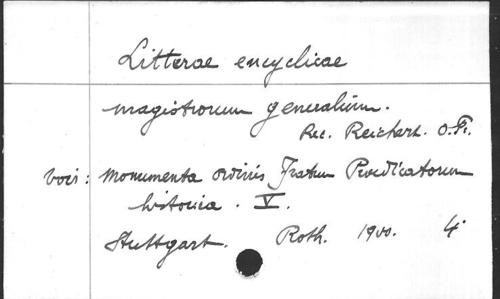 Litterae encyclicae
magistrorum generalium.
Rec. Reichert. O. Fr.
voir: Monumenta ordinis Fratrum Praedicatorum
historica. V.
Stuttgart. Roth. 1900. 4°